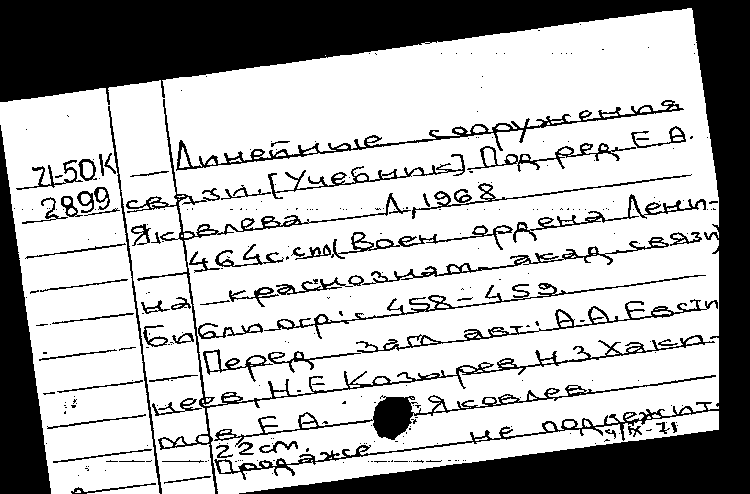 71-50К Линейные сооружения
2899 связи. [Учебник]. Под ред. Е. А.
Яковлева. Л, 1968.
464 с. сил (Воен ордена Лени-
на краснознам. акад. связи)
Библиогр: с 458 - 459.
Перед загл авт.: А.А. Евсти
неев, Н.Е Козырев, Н.З Хаки-
мов, Е А. Яковлев.
22 см.
Продаже не подлежит.